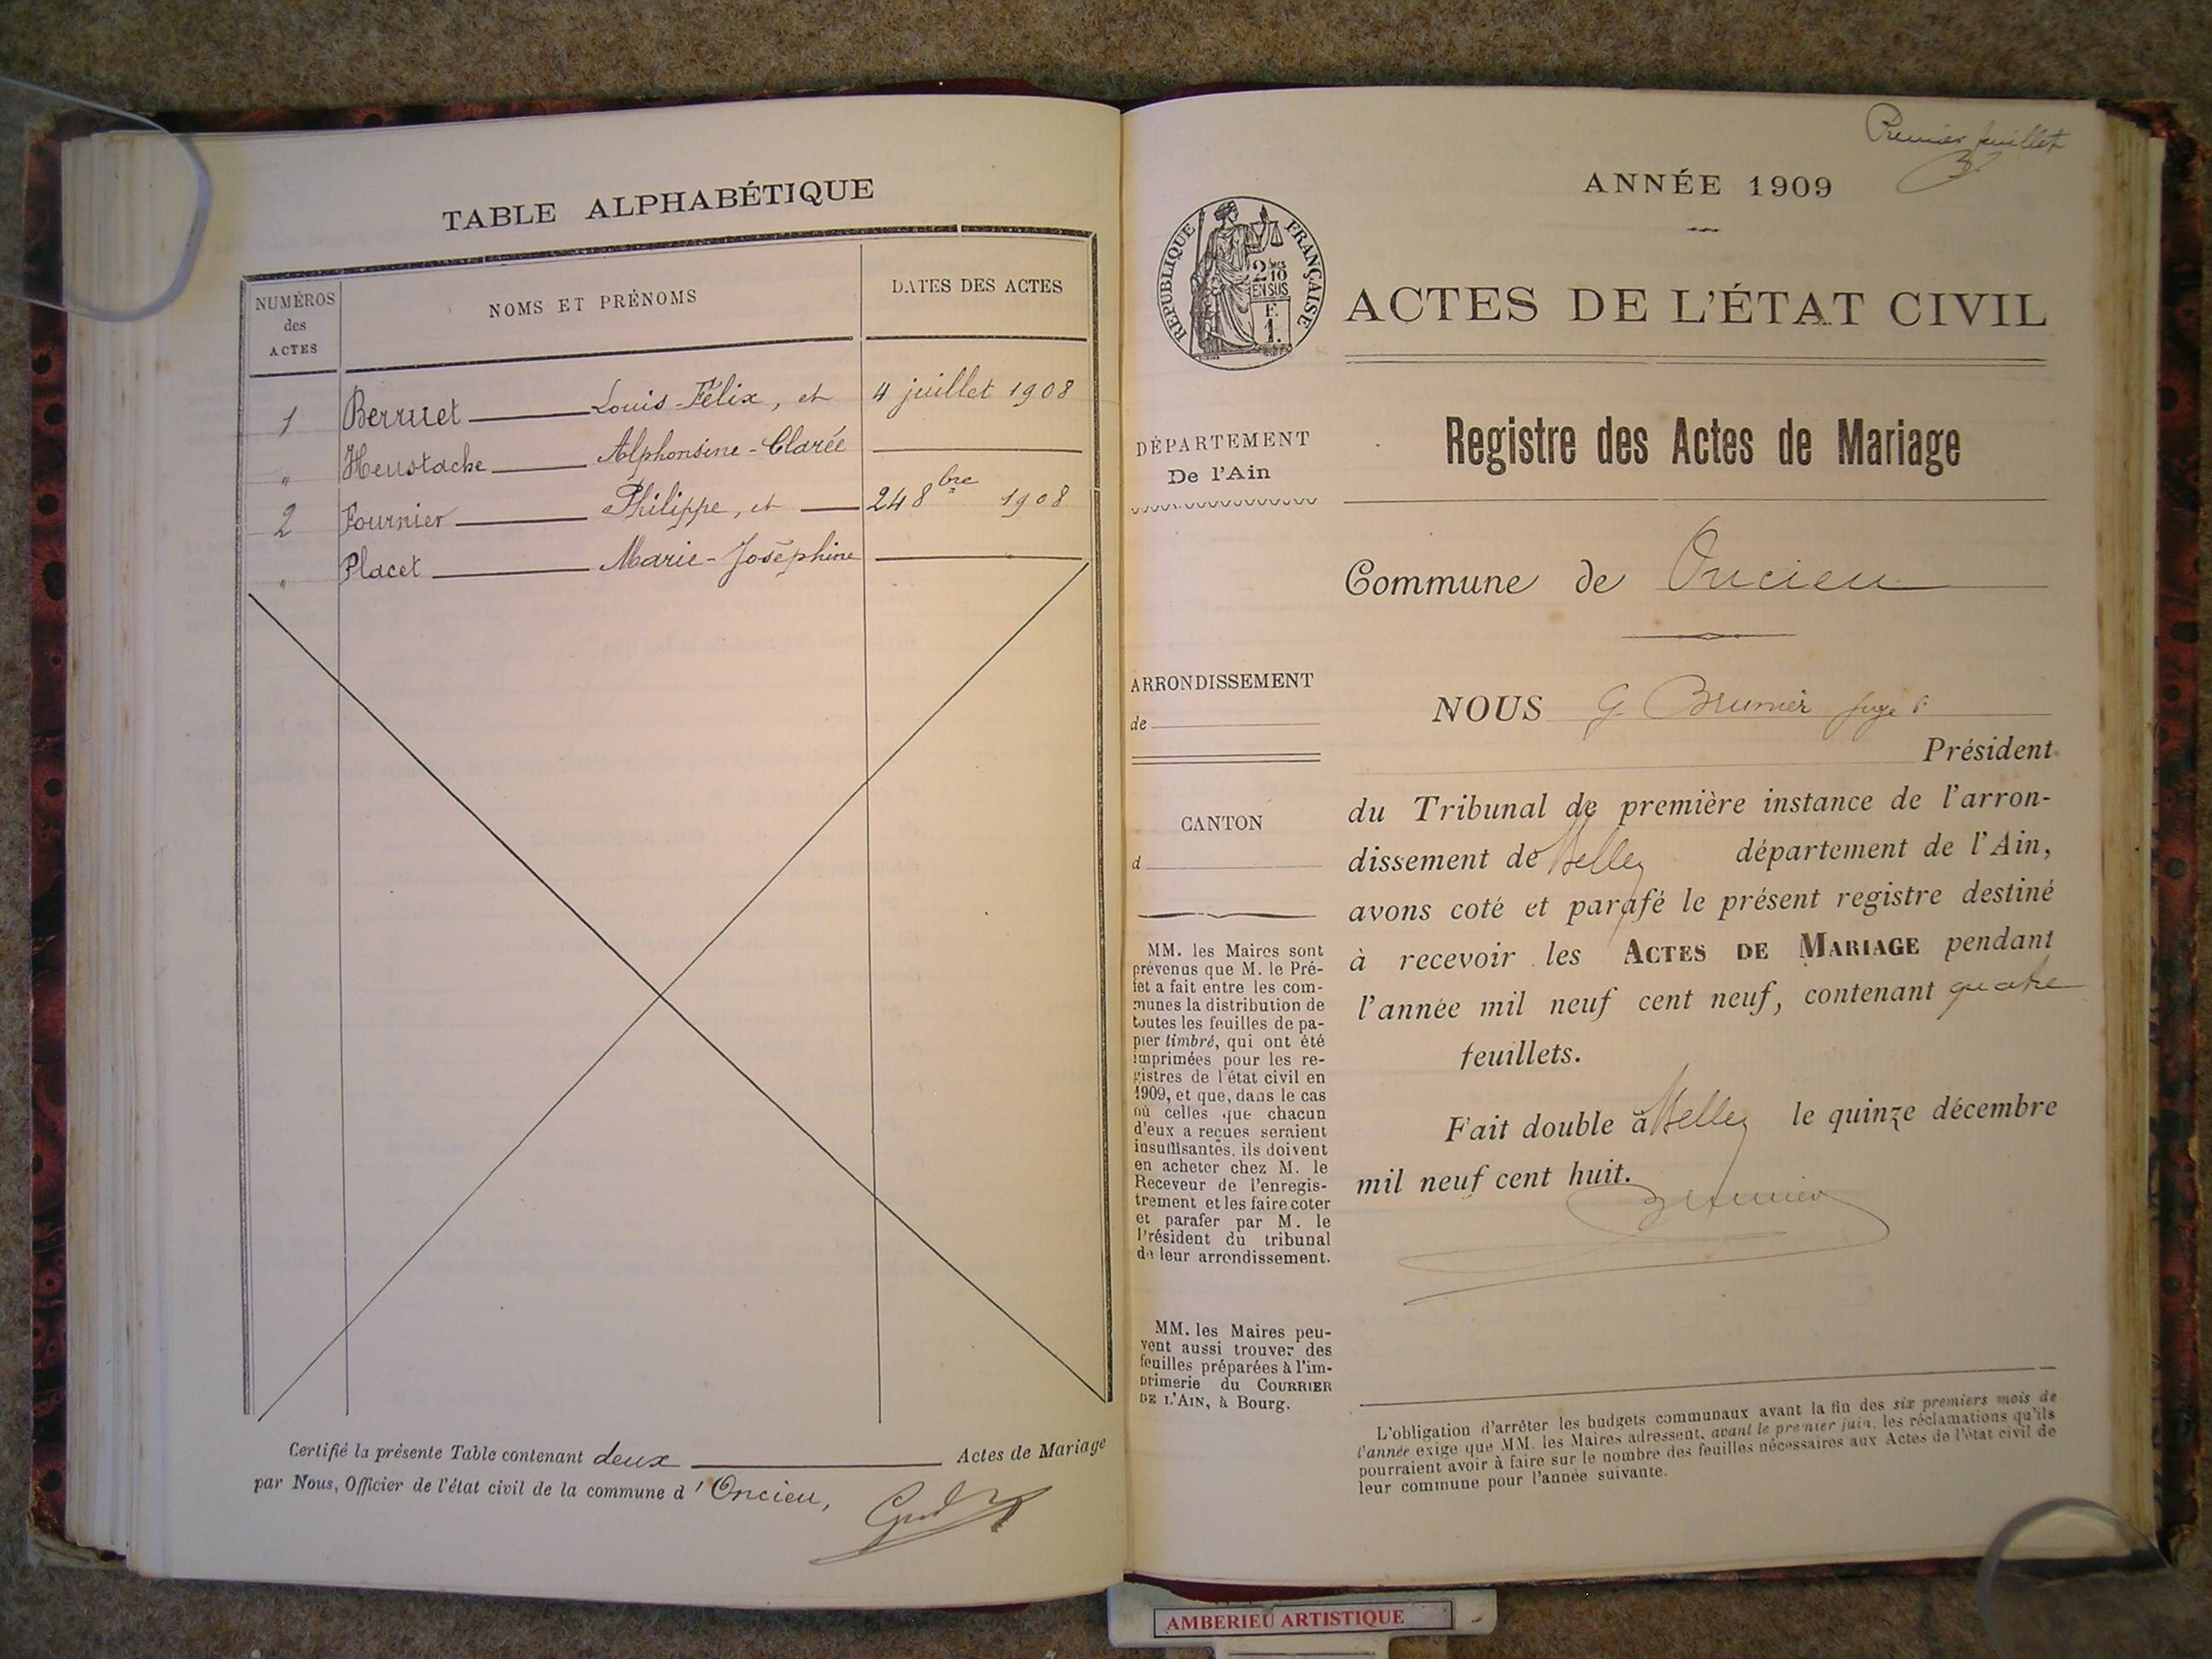 TABLE ALPHABÉTIQUE
NUMÉROS
des
ACTES
NOMS ET PRÉNOMS
DATES DES ACTES
1 Berruet Louis-Félix, et 4 juillet 1908
" Heustache Alphonsine-Clarée
2 Fournier Philippe, et 24 8bre 1908
" Placet Marie-Joséphine
Certifié la présente Table contenant deux Actes de Mariage
par Nous, Officier de l'état civil de la commune d'Oncieu,
Premier feuillet
ANNÉE 1909
RÉPUBLIQUE FRANÇAISE
2/10 MES
EN SUS
F.
1.
ACTES DE L'ÉTAT CIVIL
DÉPARTEMENT
De l'Ain
Registre des Actes de Mariage
Commune de Oncieu
ARRONDISSEMENT
de
CANTON
d
MM. les Maires sont
prévenus que M. le Pré-
fet a fait entre les com-
munes la distribution de
toutes les feuilles de pa-
pier timbré, qui ont été
imprimées pour les re-
gistres de l'état civil en
1909, et que, dans le cas
où celles que chacun
d'eux a reçues seraient
insuffisantes, ils doivent
en acheter chez M. le
Receveur de l'enregis-
trement et les faire coter
et parafer par M. le
Président du tribunal
de leur arrondissement.
MM. les Maires peu-
vent aussi trouver des
feuilles préparées à l'im-
primerie du COURRIER
DE L'AIN, à Bourg.
NOUS G. Brunier juge
Président
du Tribunal de première instance de l'arron-
dissement de Belley département de l'Ain,
avons coté et parafé le présent registre destiné
à recevoir les ACTES DE MARIAGE pendant
l'année mil neuf cent neuf, contenant quatre
feuillets.
Fait double à Belley le quinze décembre
mil neuf cent huit.
Brunier
L'obligation d'arrêter les budgets communaux avant la fin des six premiers mois de
l'année exige que MM. les Maires adressent, avant le premier juin, les réclamations qu'ils
pourraient avoir à faire sur le nombre des feuilles nécessaires aux Actes de l'état civil de
leur commune pour l'année suivante.
AMBERIEU ARTISTIQUE